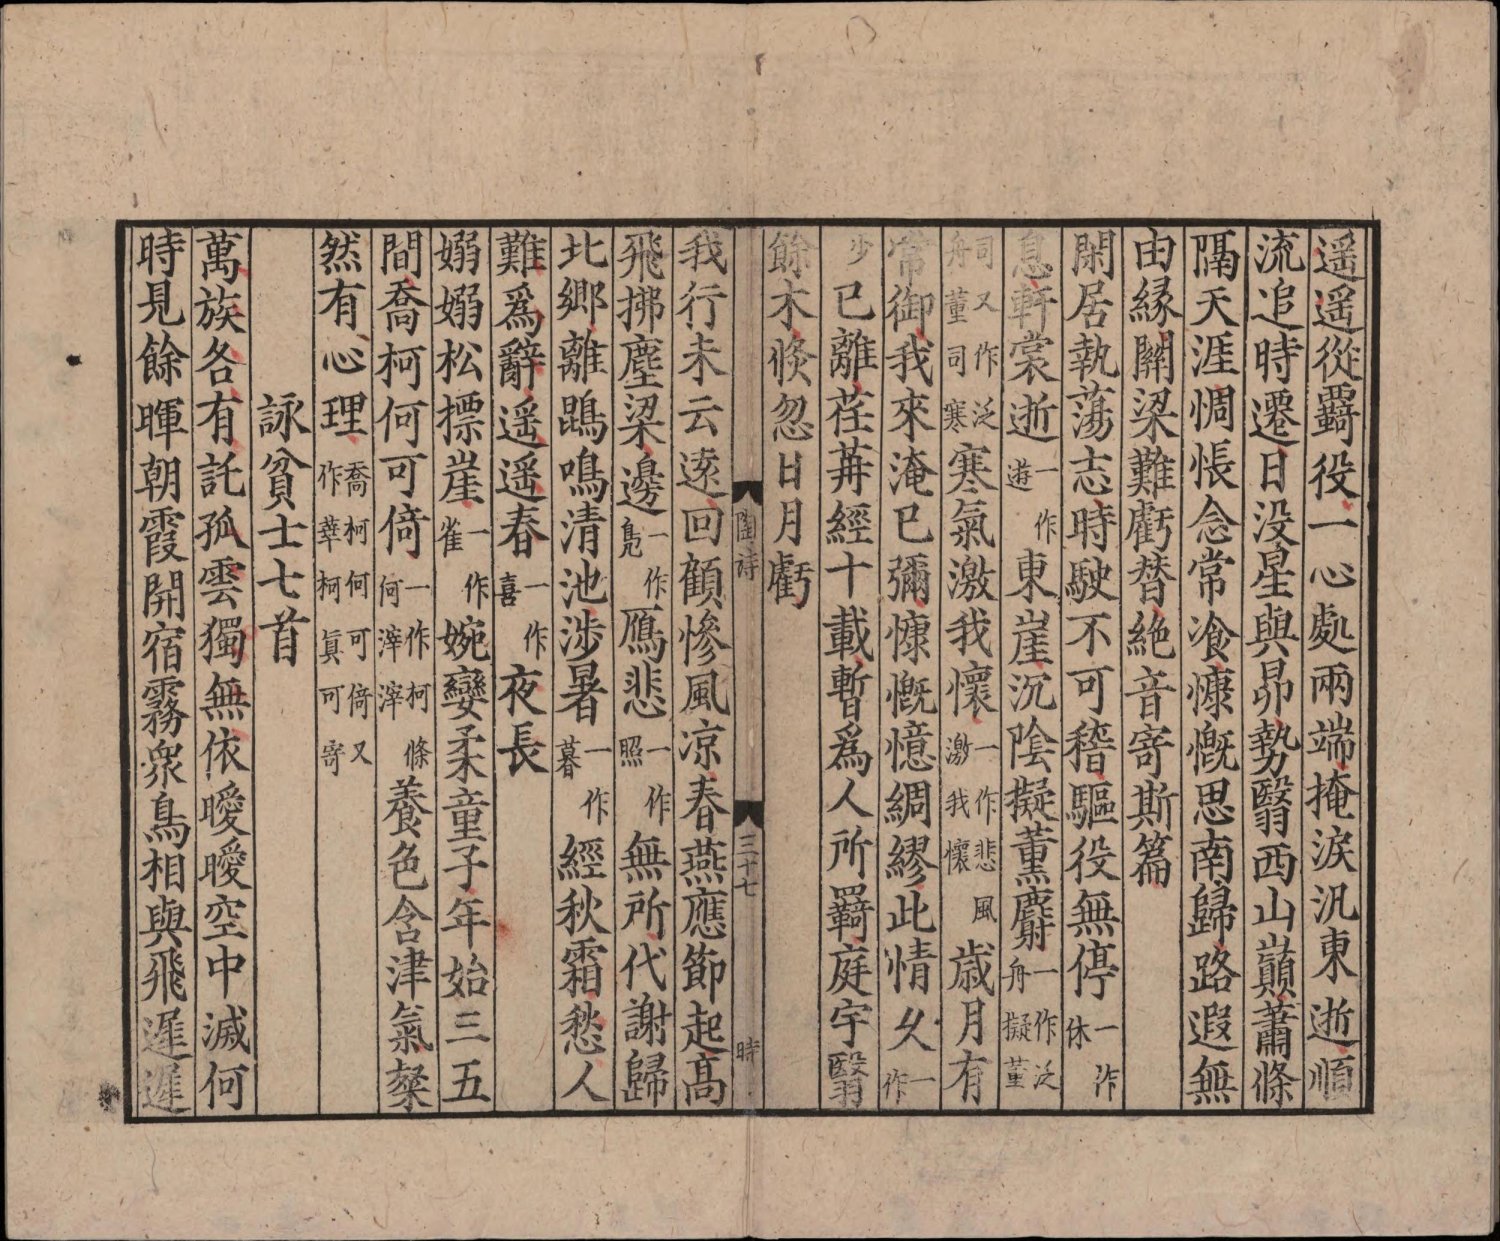 遥遥從覊役一心處兩端掩淚汎東逝順
流追時遷日没星與昴勢翳西山巔蕭條
隔天涯惆悵念常飡慷慨思南歸路遐無
由緣關梁難虧替絶音寄斯篇
閑居執蕩志時駛不可稽驅役無停一作休
息軒裳逝一作遊東崖沉陰擬薰麝一作泛舟擬董
司又作泛舟董司寒寒氣激我懷一作悲風激我懷歲月有
常御我來淹已彌慷慨憶綢繆此情久一作
少已離荏苒經十載暫爲人所羇庭宇翳
餘木倏忽日月虧
陶诗 三十七 時
我行未云遠回顧慘風凉春燕應節起高
飛拂塵梁邊一作鳬鴈悲一作照無所代謝歸
北鄉離鵾鳴清池涉暑一作暮經秋霜愁人
難爲辭遥遥春一作喜夜長
嫋嫋松摽崖一作雀婉孌柔童子年始三五
間喬柯何可倚一作柯條何滓滓養色含津氣粲
然有心理喬柯何可倚又作華柯真可寄
詠貧士七首
萬族各有託孤雲獨無依曖曖空中滅何
時見餘暉朝霞開宿霧衆鳥相與飛遲遲